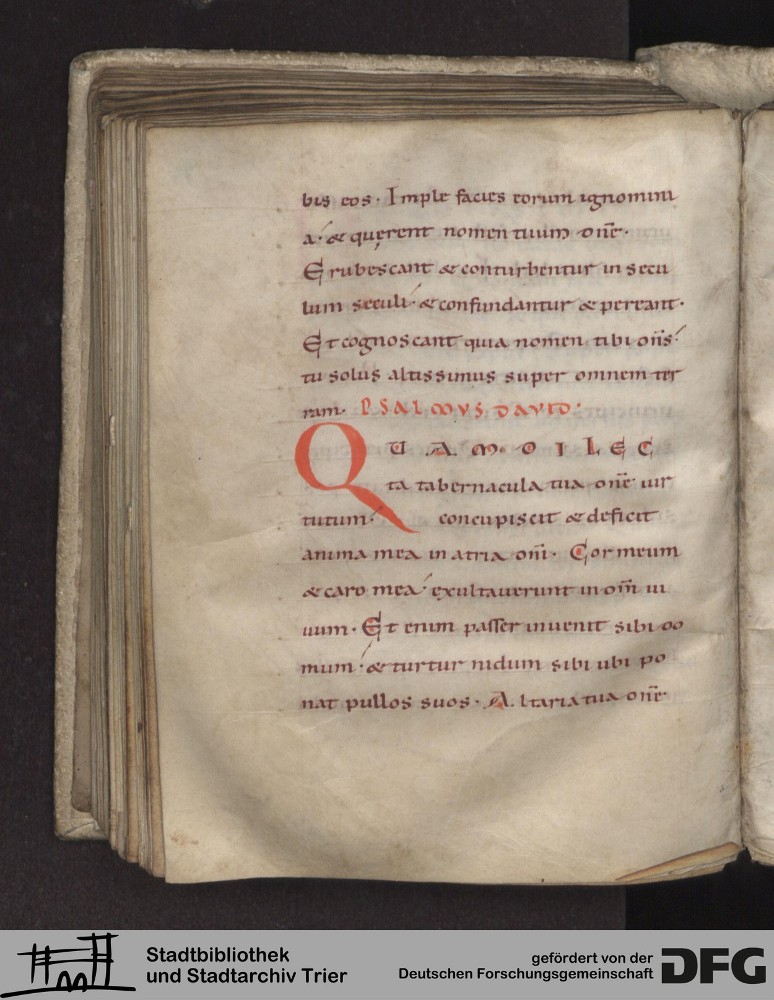 bis eos. Imple facies eorum ignomini
a. & quęrent nomen tuum dn̄e.
Erubescant & conturbentur in secu
lum seculi. & confundantur & pereant.
Et cognoscant quia nomen tibi dn̄s.
tu solus altissimus super omnem ter
ram. PSALMUS DAVID.
QUAM DILEC
ta tabernacula tua dn̄e uir
tutum. concupiscit & deficit
anima mea in atria dn̄i. Cor meum
& caro mea. exultauerunt in dm̄ ui
uum. Et enim passer inuenit sibi do
mum. & turtur nidum sibi ubi po
nat pullos suos. Altaria tua dn̄e
Stadtbibliothek
und Stadtarchiv Trier
gefördert von der
Deutschen Forschungsgemeinschaft
DFG